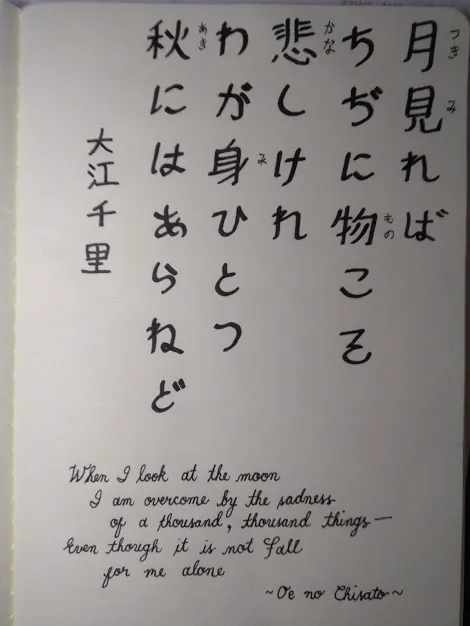 つき み
月見れば
もの
ちぢに物こそ
かな
悲しけれ
み
わが身ひとつ
あき
秋にはあらねど
大江千里
When I look at the moon
I am overcome by the sadness
of a thousand, thousand things—
Even though it is not Fall
for me alone
~Oe no Chisato~